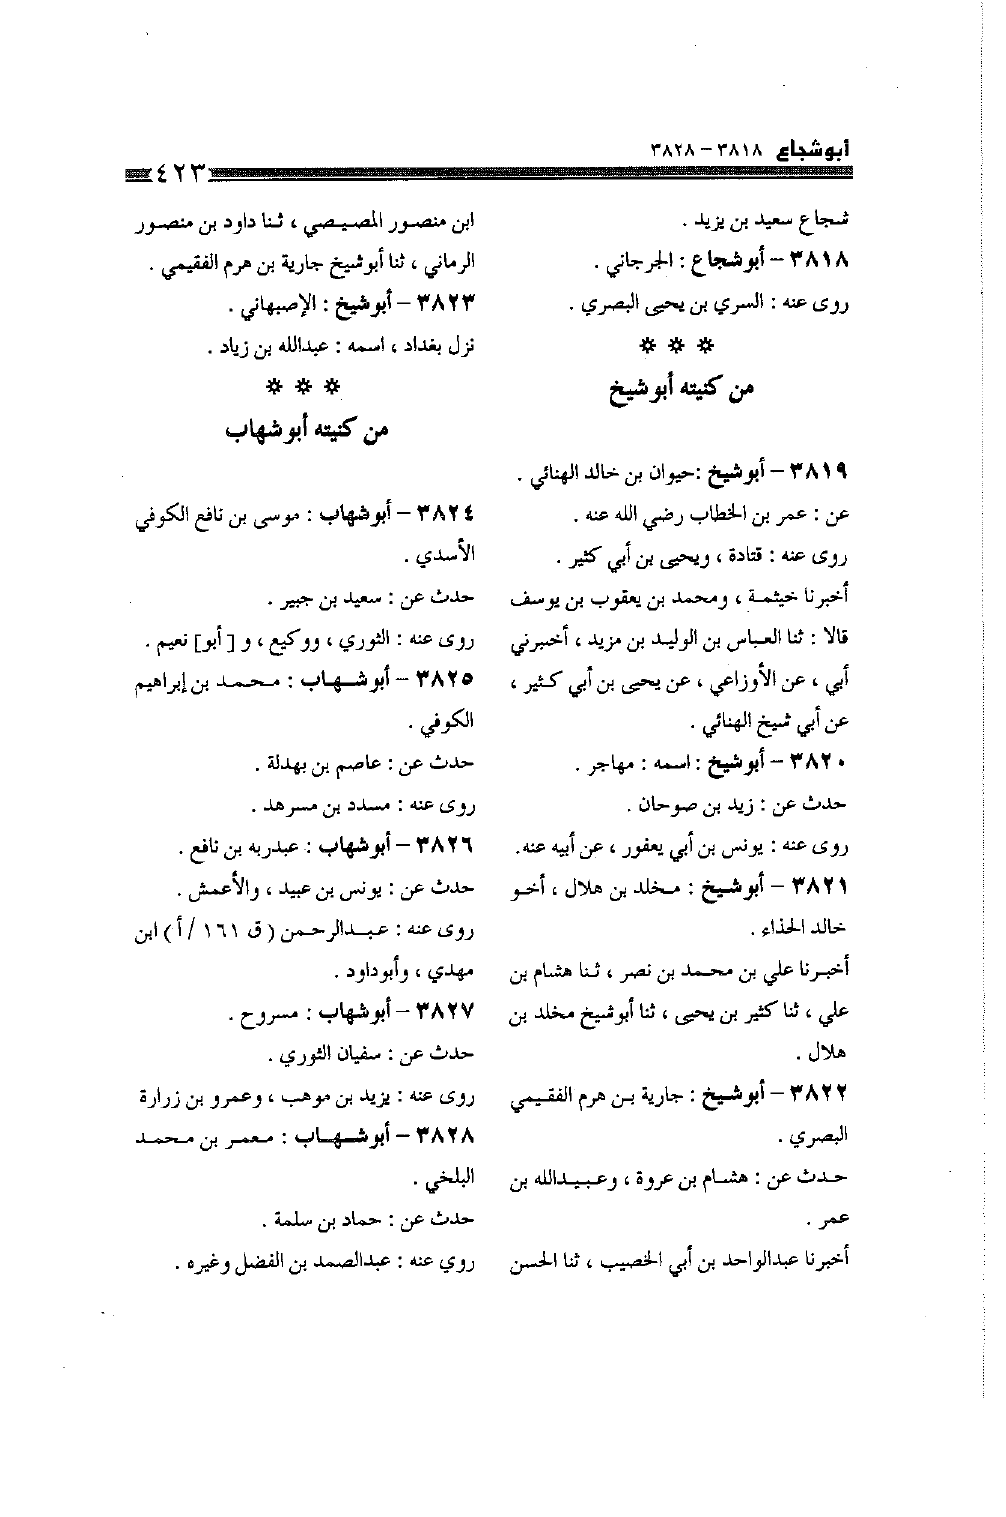 أبوشجاع ٣٨١٨ – ٣٨٢٨
٤٢٣
شجاع سعيد بن يزيد .
٣٨١٨ – أبوشجاع : الجرجاني .
روى عنه : السري بن يحيى البصري .
* * *
من كنيته أبوشيخ
٣٨١٩ – أبوشيخ :حيوان بن خالد الهنائي .
عن : عمر بن الخطاب رضي الله عنه .
روى عنه : قتادة ، ويحيى بن أبي كثير .
أخبرنا خيثمة ، ومحمد بن يعقوب بن يوسف
قالا : ثنا العباس بن الوليد بن مزيد ، أخبرني
أبي ، عن الأوزاعي ، عن يحيى بن أبي كثير ،
عن أبي شيخ الهنائي .
٣٨٢٠ – أبوشيخ : اسمه : مهاجر .
حدث عن : زيد بن صوحان .
روى عنه : يونس بن أبي يعفور ، عن أبيه عنه.
٣٨٢١ – أبوشيخ : مخلد بن هلال ، أخو
خالد الحذاء .
أخبرنا علي بن محمد بن نصر ، ثنا هشام بن
علي ، ثنا كثير بن يحيى ، ثنا أبوشيخ مخلد بن
هلال .
٣٨٢٢ – أبوشيخ : جارية بن هرم الفقيمي
البصري .
حدث عن : هشام بن عروة ، وعبيدالله بن
عمر .
أخبرنا عبدالواحد بن أبي الخصيب ، ثنا الحسن
ابن منصور المصيصي ، ثنا داود بن منصور
الرماني ، ثنا أبوشيخ جارية بن هرم الفقيمي .
٣٨٢٣ – أبوشيخ : الإصبهاني .
نزل بغداد ، اسمه : عبدالله بن زياد .
* * *
من كنيته أبوشهاب
٣٨٢٤ – أبوشهاب : موسى بن نافع الكوفي
الأسدي .
حدث عن : سعيد بن جبير .
روى عنه : الثوري ، ووكيع ، و [أبو] نعيم .
٣٨٢٥ – أبوشهاب : محمد بن إبراهيم
الكوفي .
حدث عن : عاصم بن بهدلة .
روى عنه : مسدد بن مسرهد .
٣٨٢٦ – أبوشهاب : عبدربه بن نافع .
حدث عن : يونس بن عبيد ، والأعمش .
روى عنه : عبدالرحمن (ق ١٦١ /أ) ابن
مهدي ، وأبوداود .
٣٨٢٧ – أبوشهاب : مسروح .
حدث عن : سفيان الثوري .
روى عنه : يزيد بن موهب ، وعمرو بن زرارة
٣٨٢٨ – أبوشهاب : معمر بن محمد
البلخي .
حدث عن : حماد بن سلمة .
روي عنه : عبدالصمد بن الفضل وغيره .